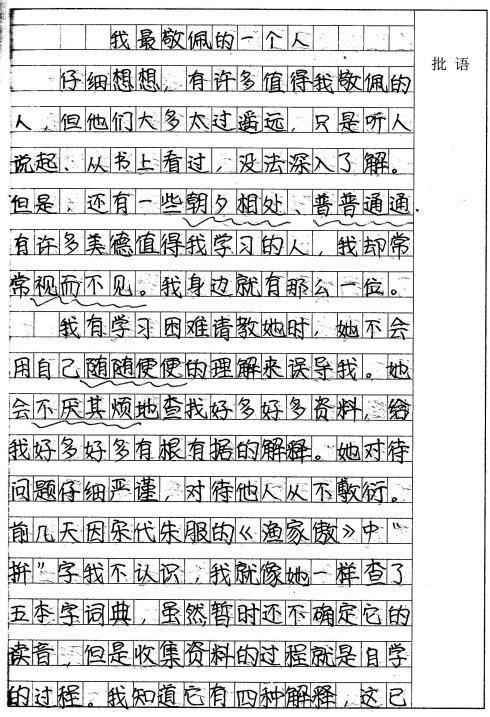 我最敬佩的一个人
批语
仔细想想，有许多值得我敬佩的
人，但他们大多太过遥远，只是听人
说起、从书上看过，没法深入了解。
但是，还有一些朝夕相处、普普通通
有许多美德值得我学习的人，我却常
常视而不见。我身边就有那么一位。
我有学习困难请教她时，她不会
用自己随随便便的理解来误导我。她
会不厌其烦地查找好多好多资料，给
我好多好多有根有据的解释。她对待
问题仔细严谨，对待他人从不敷衍。
前几天因宋代朱服的《渔家傲》中“
拚”字我不认识，我就像她一样查了
五本字词典，虽然暂时还不确定它的
读音，但是收集资料的过程就是自学
的过程。我知道它有四种解释，这已